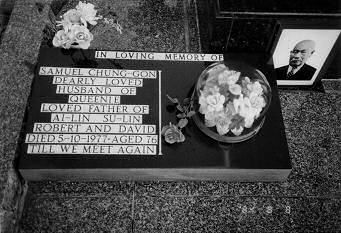 IN LOVING MEMORY OF
SAMUEL CHUNG-GON
DEARLY LOVED
HUSBAND OF
QUEENIE
LOVED FATHER OF
AI-LIN SU-LIN
ROBERT AND DAVID
DIED 5-10-1977·AGED 76
TILL WE MEET AGAIN